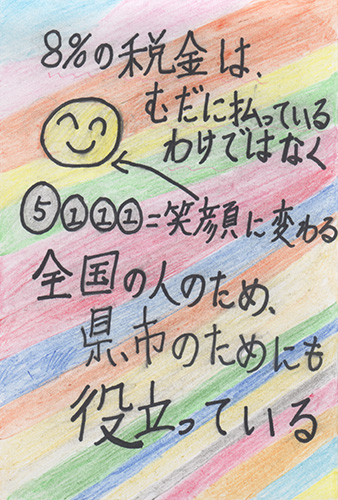 8%の税金は、
むだに払っている
わけではなく
5111=笑顔に変わる
全国の人のため、
県、市のためにも
役立っている